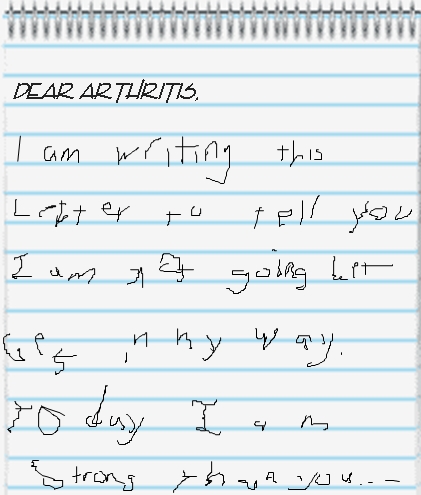 DEAR ARTHRITIS.
I am writing this
Letter to tell you
I am not going let
in my way.
TO day I am
Strong than you...